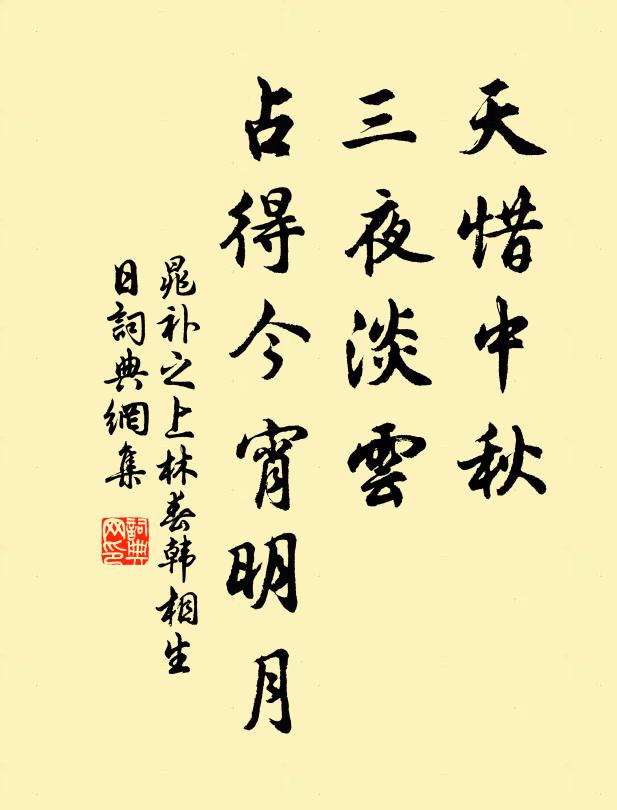 天惜中秋
三夜淡雲
占得今宵明月
晁补之上林春韩相生
日詞典網集
詞典网印